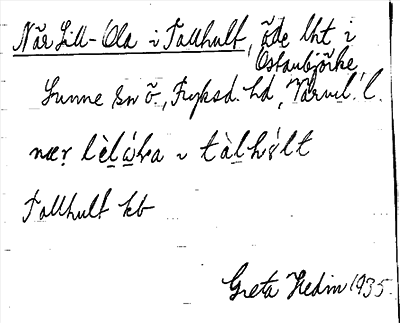 När Lill-Ola i Tallhult, öde lht i
Östanbjörke
Sunne sn ö., Fryksd. hd, Värml. l.
nær lèlὠra ι tàlhv́lt
Tallhult kb
Greta Hedin 1935.